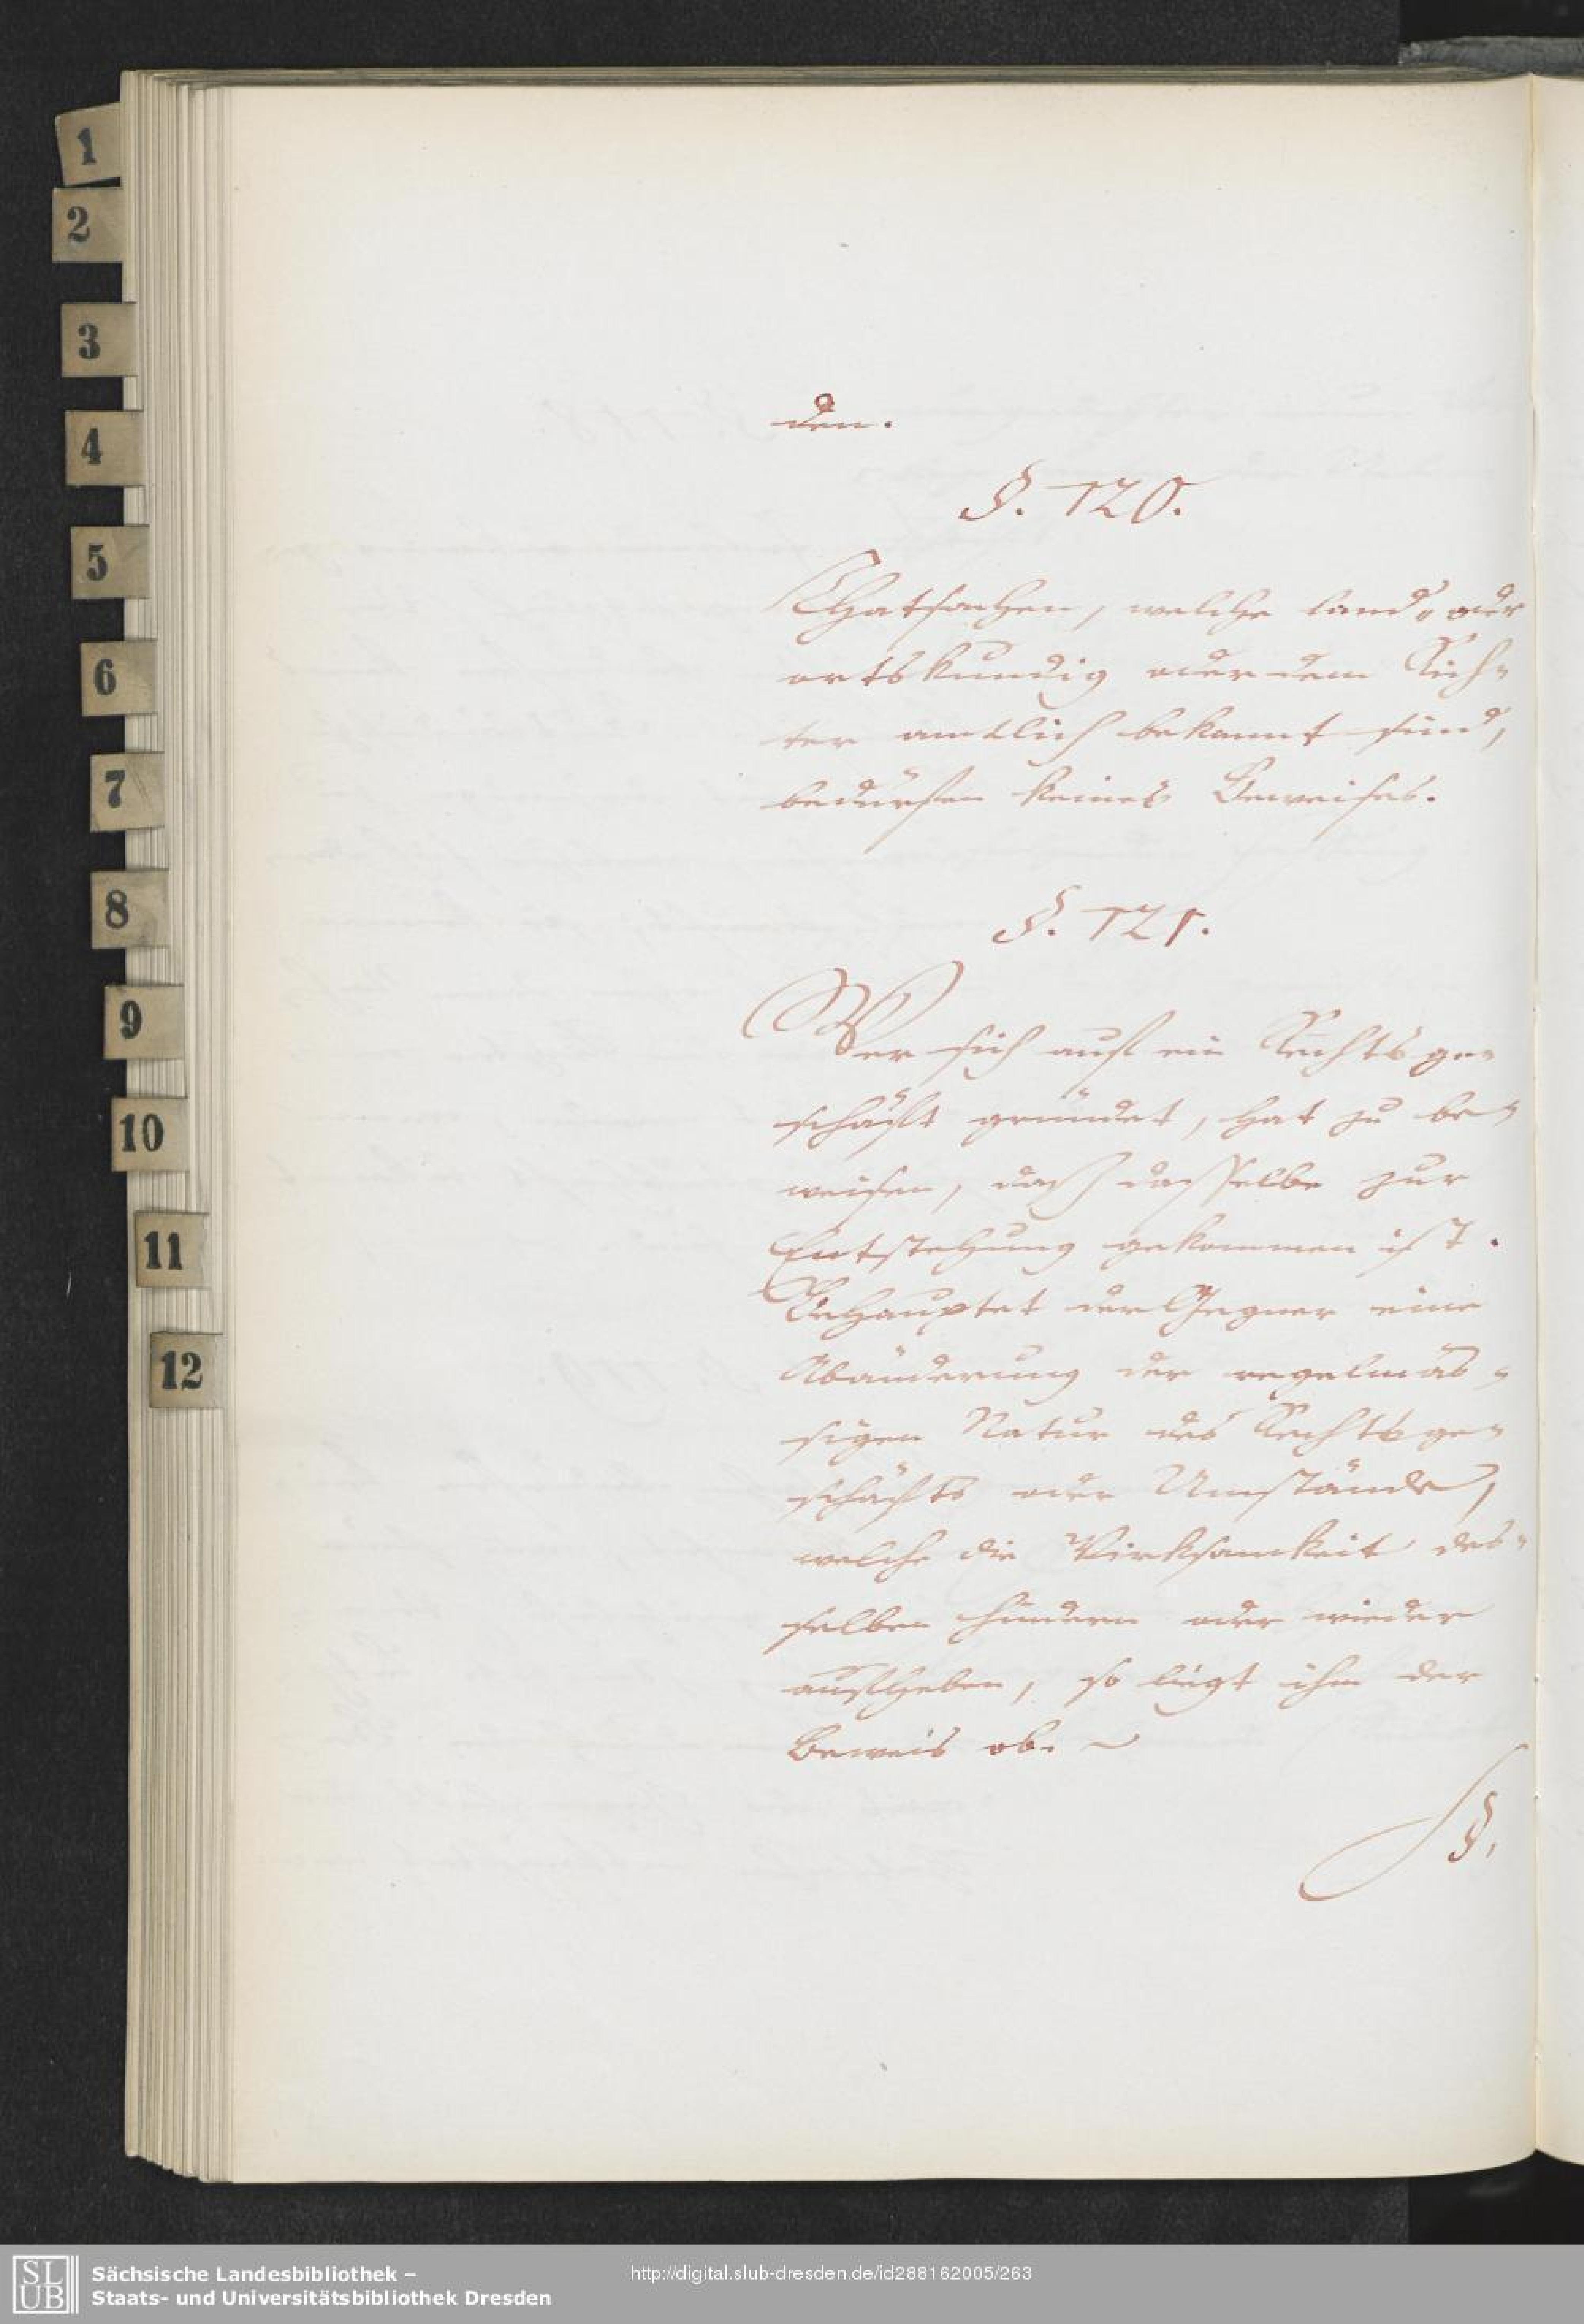 1
2
3
4
5
6
7
8
9
10
11
12
den.
§. 120.
Thatsachen, welche land- oder
ortskundig oder dem Rich-
ter amtlich bekannt sind,
bedürfen keines Beweises.
§. 121.
Wer sich auf ein Rechtsge-
schäft gründet, hat zu be-
weisen, daß dasselbe zur
Entstehung gekommen ist.
Behauptet der Gegner eine
Abänderung der regelmäs-
sigen Natur des Rechtsge-
schäfts oder Umstände,
welche die Wirksamkeit des-
selben hindern oder wieder
aufheben, so liegt ihm der
Beweis ob.
§.
SLUB Sächsische Landesbibliothek –
Staats- und Universitätsbibliothek Dresden
http://digital.slub-dresden.de/id288162005/263